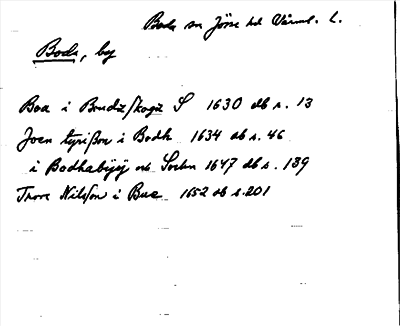 Boda sn Jösse hd Värml. L.
Boda, by
Boa i Brudz/kogz S 1630 db s. 13
Joen tyrißon i Bodh 1634 db s. 46
i Bodhabÿÿ och Sochn 1647 db s. 189
Tnore Nilsson i Boe 1652 db s. 201